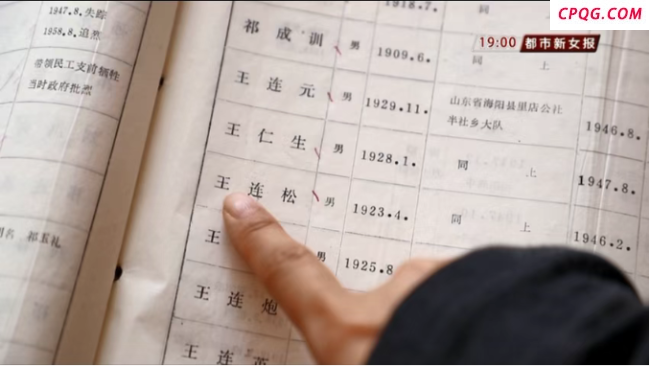 CPQG.COM
19:00 都市新女报
1947.8.失踪
1958.8.追烈
带领民工支前牺牲
当时政府批烈
祁玉礼
1918.7.
同 上
祁成训 男 1909.6. 同 上
王连元 男 1929.11. 山东省海阳县里店公社
半社乡大队 1946.8.
王仁生 男 1928.1. 同 上 1947.8.
王连松 男 1923.4. 同 上 1946.2.
王 男 1925.8
王连炮
王连英